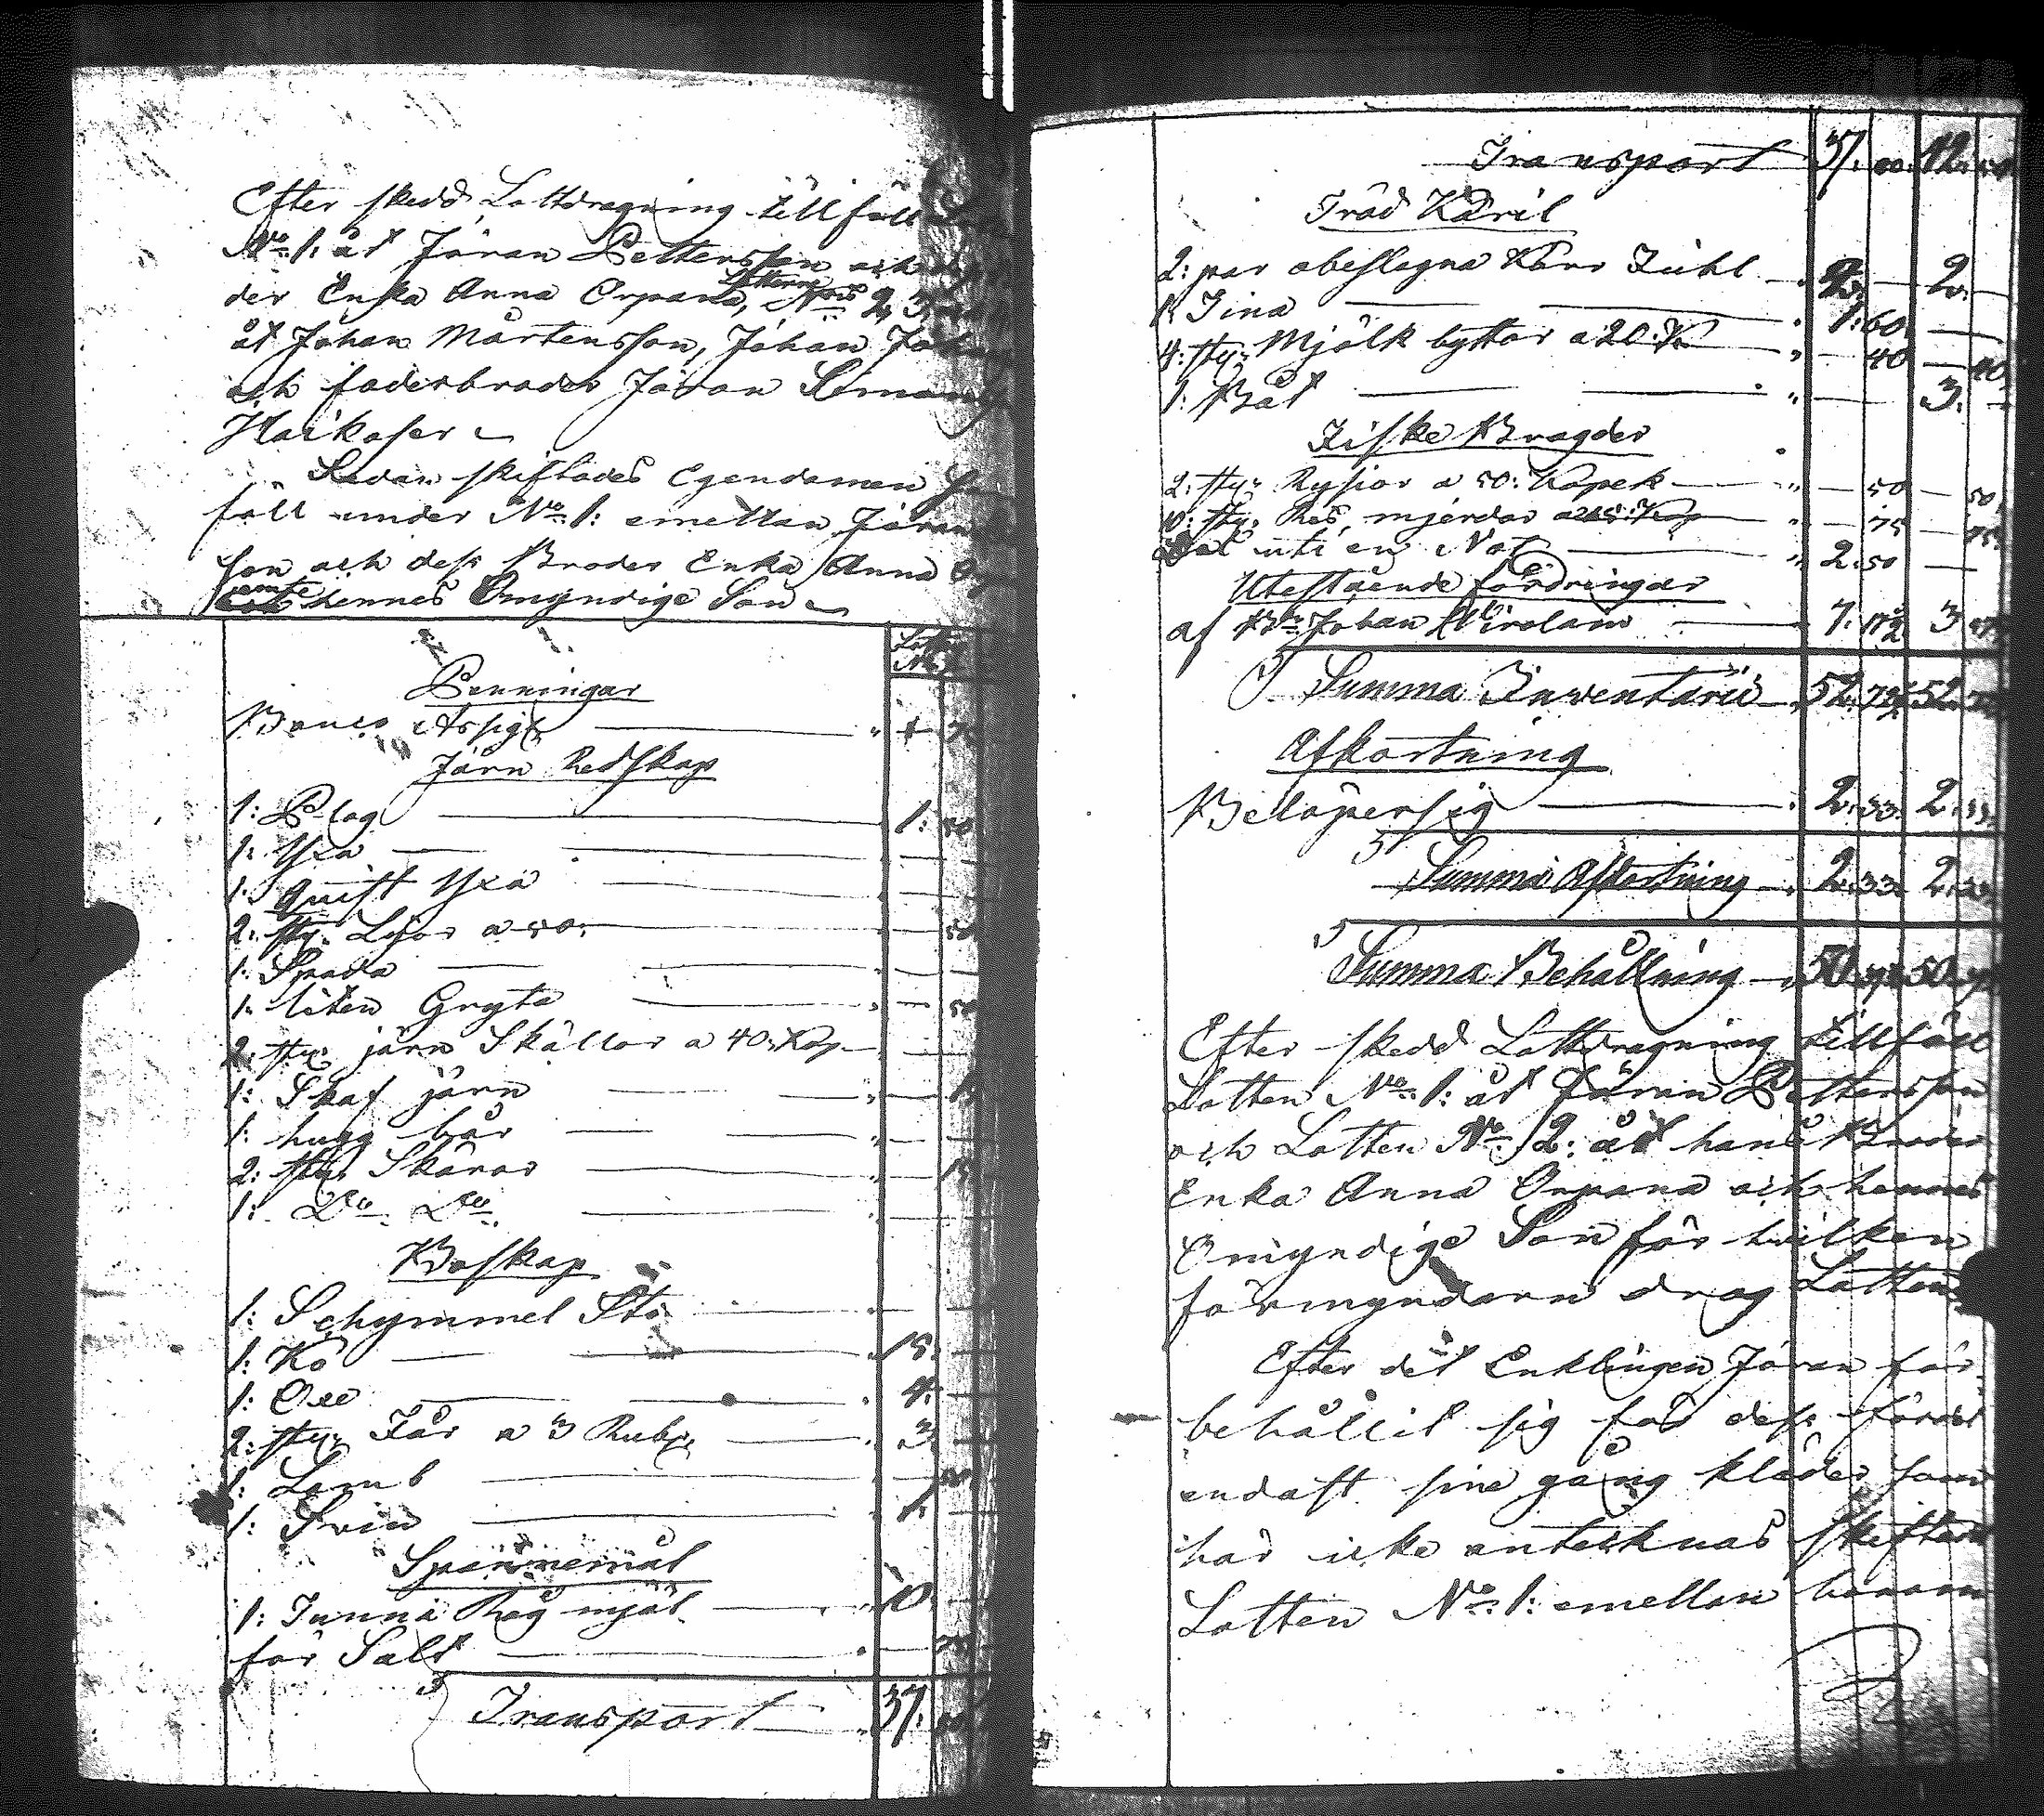 Efter skedd Lottdragning tillföll
No 1: åt Jöran Pettersson och
der Enka Anna Orpana, Lotterne No 2, 3
åt Johan Mårtensson, Johan
och faderbroder Jöran Simons
Haikaser
Sedan skiftades Egendomen
föll under No 1: emellan Jöran
son och dess Broder Enka Anna
jemte hennes Omyndige Son
Penningar
Banco Assign
Järn Redskap
1: Plog 1: 50
1: Yxa
1: Quist Yxa
2: sty: Lijor a 50: 50
1: Spada
1: liten Gryta 50
2: sty: järn Skållor a 40. Kop
1: Skaf järn
1: hugg bår
2: sty: Skäror
1: Do Do
Boskap
1: Schymmel Sto
1: Ko 15:
1: Oxe 4:
2: sty: Får a 3 Rub: 3
1: Lamb
1: Svin 1:
Spannemål
1: Tunna Råg mjöl 10
för Salt
Transport 37:
Transport 37. 00. 12. 50
Träd Käril
2: par obeslagna Kärr Juhl 2. 2.
1: Tina 1: 60
4: sty: Mjölk byttor a 20: K 40 40
1: Båt 3.
Fiske Bragder
2: sty: Rysior a 50: Kopek 50 50
10: sty: Res mjerdar a 15: Kop 75 75
Del uti en Not 2: 50
Utestående fordringar
af Johan Wirolain 7. 17½ 3
Summa Inventarii 52. 72½ 52.
Afkortning
Belöpersig 2. 33. 2. 33.
Summa Afkortning 2. 33. 2. 33
Summa Behållning 50. 50.
Efter skedd Lottdragning tillföll
Lotten No 1: åt Jöran Pettersson
och Lotten No 2: åt hans Broder
Enka Anna Orpana och hennes
Omyndige Son för hvilken
förmyndarn drog Lotten
Efter det Enklingen Jöran för
behållit sig för dess fördel
endast sine gång kläder som
här icke antecknas skiftades
Lotten No 1: emellan honom